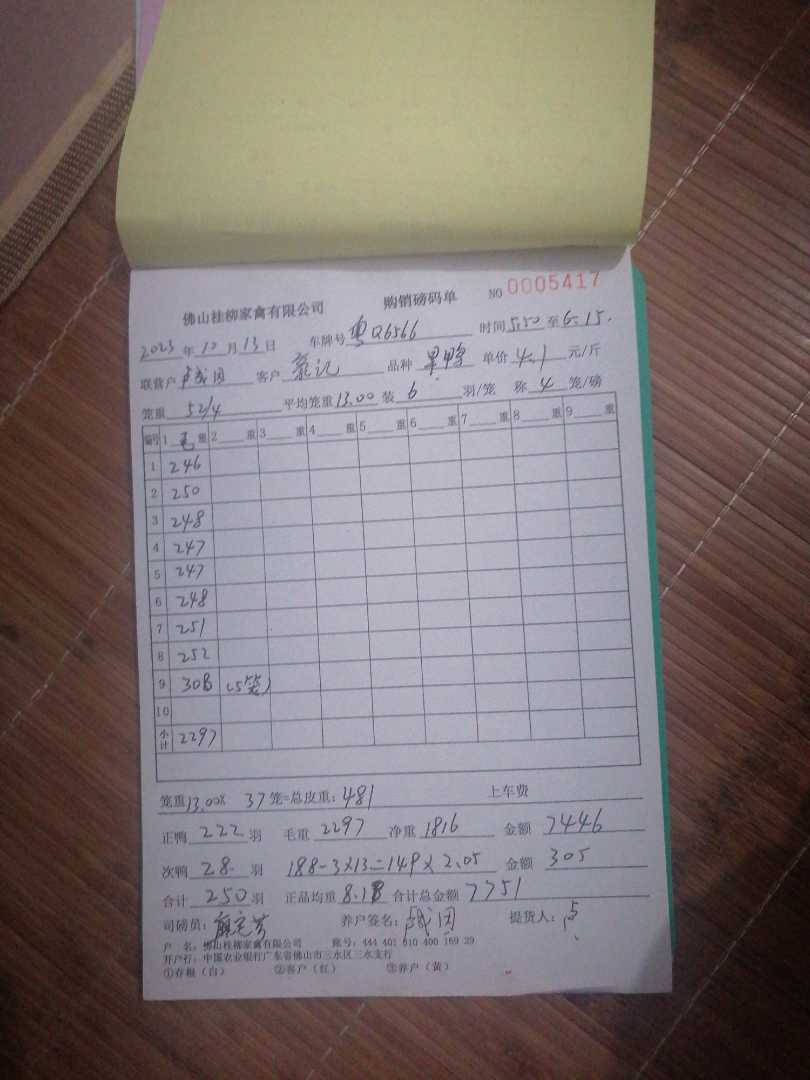 佛山桂柳家禽有限公司 购销磅码单 NO 0005417
2023年10月13日 车牌号粤Q6566 时间5:50至6:15.
联营户 客户 记 品种 单价4.1元/斤
笼重52/4 平均笼重13.00装6羽/笼 称4笼/磅
编号 1毛重 2重 3重 4重 5重 6重 7重 8重 9重
1 246
2 250
3 248
4 247
5 247
6 248
7 251
8 252
9 308 (5笼)
10
小计 2297
笼重13.00× 37笼=总皮重:481 上车费
正鸭222羽 毛重2297 净重1816 金额7446
次鸭28.羽 188-3×13=149×2.05 金额305
合计250羽 正品均重8.18 合计总金额7751
司磅员: 养户签名: 提货人:
户 名:佛山桂柳家禽有限公司 账号:444 401 010 400 169 29
开户行:中国农业银行广东省佛山市三水区三水支行
①存根(白) ②客户(红) ③养户(黄)